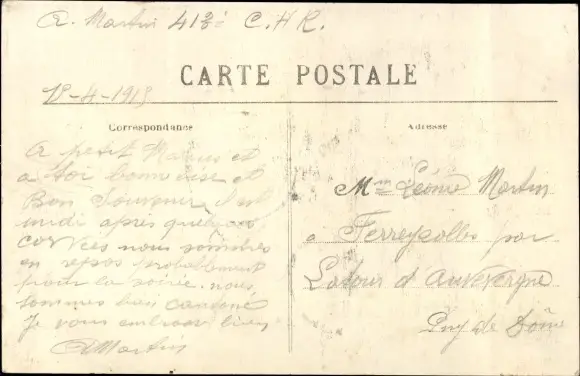 A. Martin 413è C.H.R.
CARTE POSTALE
4-1918
Correspondance
A petit Marius et
a toi bonne bise et
Bon Souvenir il est
midi après quelques
corvées nous sommes
en repos probablement
pour la soirée. nous
sommes bien
Je vous embrasse bien
AMartin
Adresse
Mme Léonie Martin
a Ferreyrolles par
Latour d'auvergne
Puy de Dôme